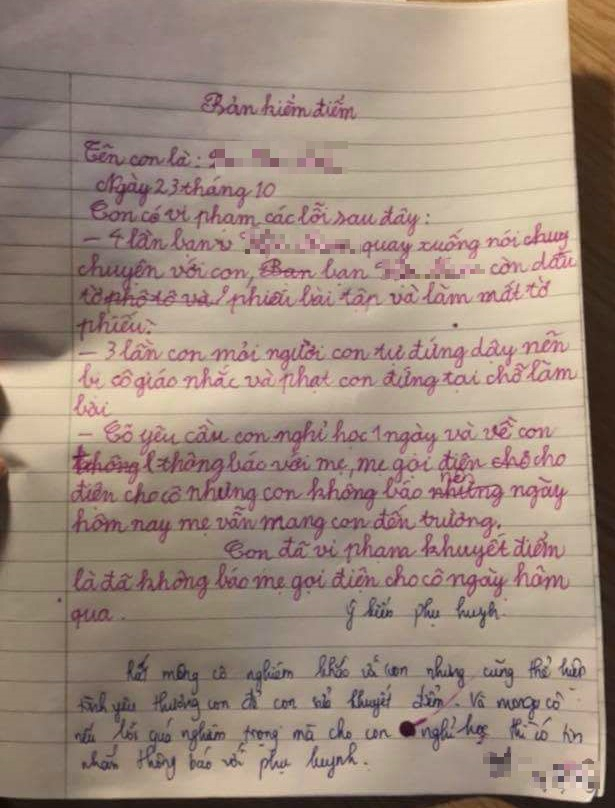 Bản kiểm điểm
Tên con là:
Ngày 23 tháng 10
Con có vi phạm các lỗi sau đây:
- 4 lần bạn quay xuống nói chuyện
chuyện với con, Bạn bạn còn dấu
tờ phô tô và phiếu bài tập và làm mất tờ
phiếu.
- 3 lần con mỏi người con tự đứng dậy nên
bị cô giáo nhắc và phạt con đứng tại chỗ làm
bài
- Cô yêu cầu con nghỉ học 1 ngày và về con
không thông báo với mẹ, mẹ gọi điện cho cho
điện cho cô nhưng con không bảo những nên ngày
hôm nay mẹ vẫn mang con đến trường.
Con đã vi phạm khuyết điểm
là đã không báo mẹ gọi điện cho cô ngày hôm
qua.
Ý kiến phụ huynh.
Rất mong cô nghiêm khắc với con nhưng cũng thể hiện
tình yêu thương con để con sửa khuyết điểm. Và mong cô
nếu lỗi quá nghiêm trọng mà cho con nghỉ học thì cô tin
nhắn thông báo với phụ huynh.